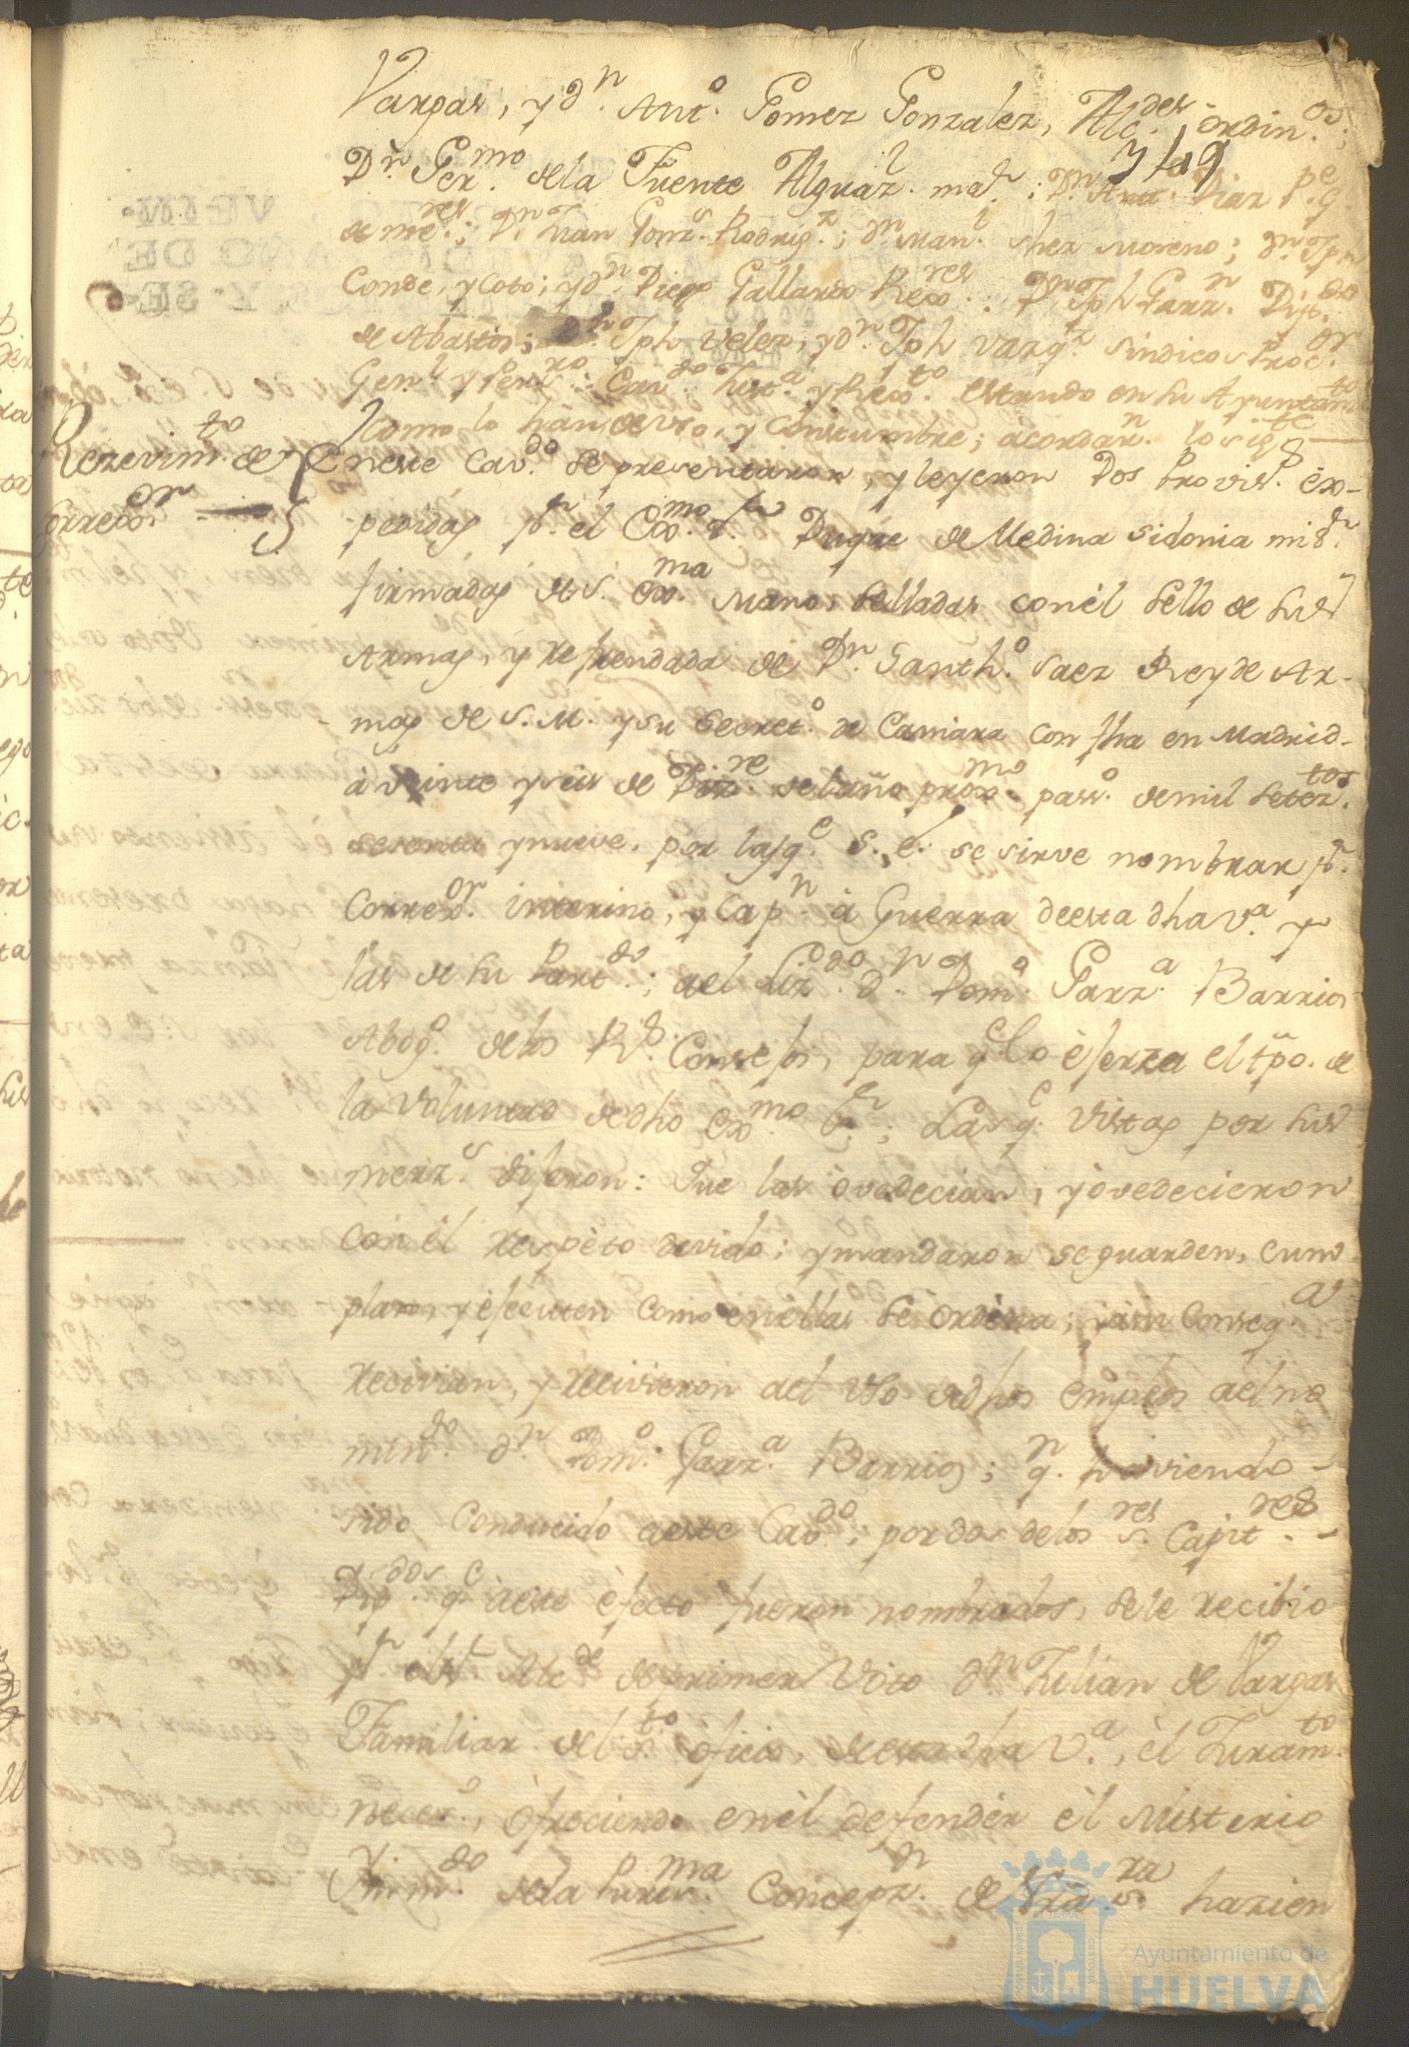 Vargas, y dn. Anto. Gomez Gonzalez, Alcdes. ordinos.;
Dn. Germo. de la Fuente Alguazl. mar.; Dn. Anto. Diaz
749
de mres.; Dn. Juan Gonzs. Rodrigz.; dn. Manl. shez Moreno; dn. Jph
Conde, y Coto; y dn. Diego Gallardo Rexres.: Dn. Jph Garzn. Dipdo.
de Abastos; dn. Jph Velez, y dn. Jph Vargs. Sindicos Procor.
Genl. y Persro.: Cavdo. Justa. y Rexto. estando en su Ayuntamto.
como lo hân de uso, y costumbre; acordarn. lo sigte.
Rezevimto. de
Correxor.
En este Cavdo. se presentaron, y leyeron Dos Proviss. ex-
pedidas pr. el Exmo. sr. Duque de Medina Sidonia mi sr.
firmadas de S. Exma. mano, selladas con el sello de sus
Armas, y refrendada de Dn. Santho. Saez Rey de Ar-
mas de S. M. y su Secreto. de Camara con fha en Madrid
â veinte y seis de Dizre. del año proxmo. passo. de mil seteztos.
sesenta y nueve, por las qe. S. E. se sirve nombrar pr.
Correxor. interino, y Capn. â Guerra de esta dha va. y
las de su Partdo.; ael Lizdo. dn. Domo. Garza. Barrios
Abogo. de los Rs. Consejos, para qe lo êjerza el tpo. de
la voluntad de dho Exmo. Sr.; Las qe. vistas por sus
merzs. dijeron: Que las ôvedecian, y ôvedecieron
con êl respeto devido; y mandaron se guarden, cum
plan, y êjecuten como en êllas se ordena; y âsu conseqa.
recivian, y recivieron ael uso de dhos empleos ael no
mindo. dn. Domo. Garza. Barrios; qn. haviendo
sido conducido aeste Cavdo. por dos de los sres. Capitres.
Dipdos. qe. âeste êfecto fueron nombrados, se le recibio
pr. el sr. Alcde. de primer voto dn. Julian de Vargas
Familiar del sto. ôficio, de esta dha va., êl Juramto.
neceso., ôfreciendo en êl defender êl Misterio
de la Purisma. Concepzn. de Nra. Sra. hazien
Ayuntamiento de
HUELVA